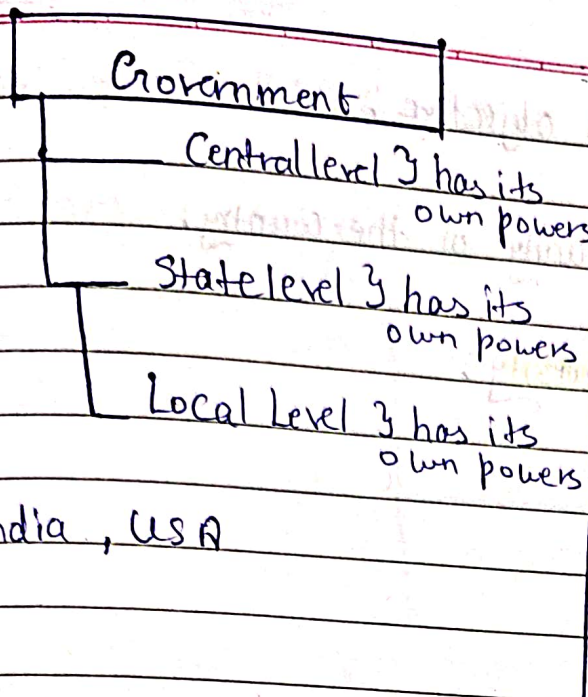 Government
Central level } has its
own powers
State level } has its
own powers
Local Level } has its
own powers
ndia, USA